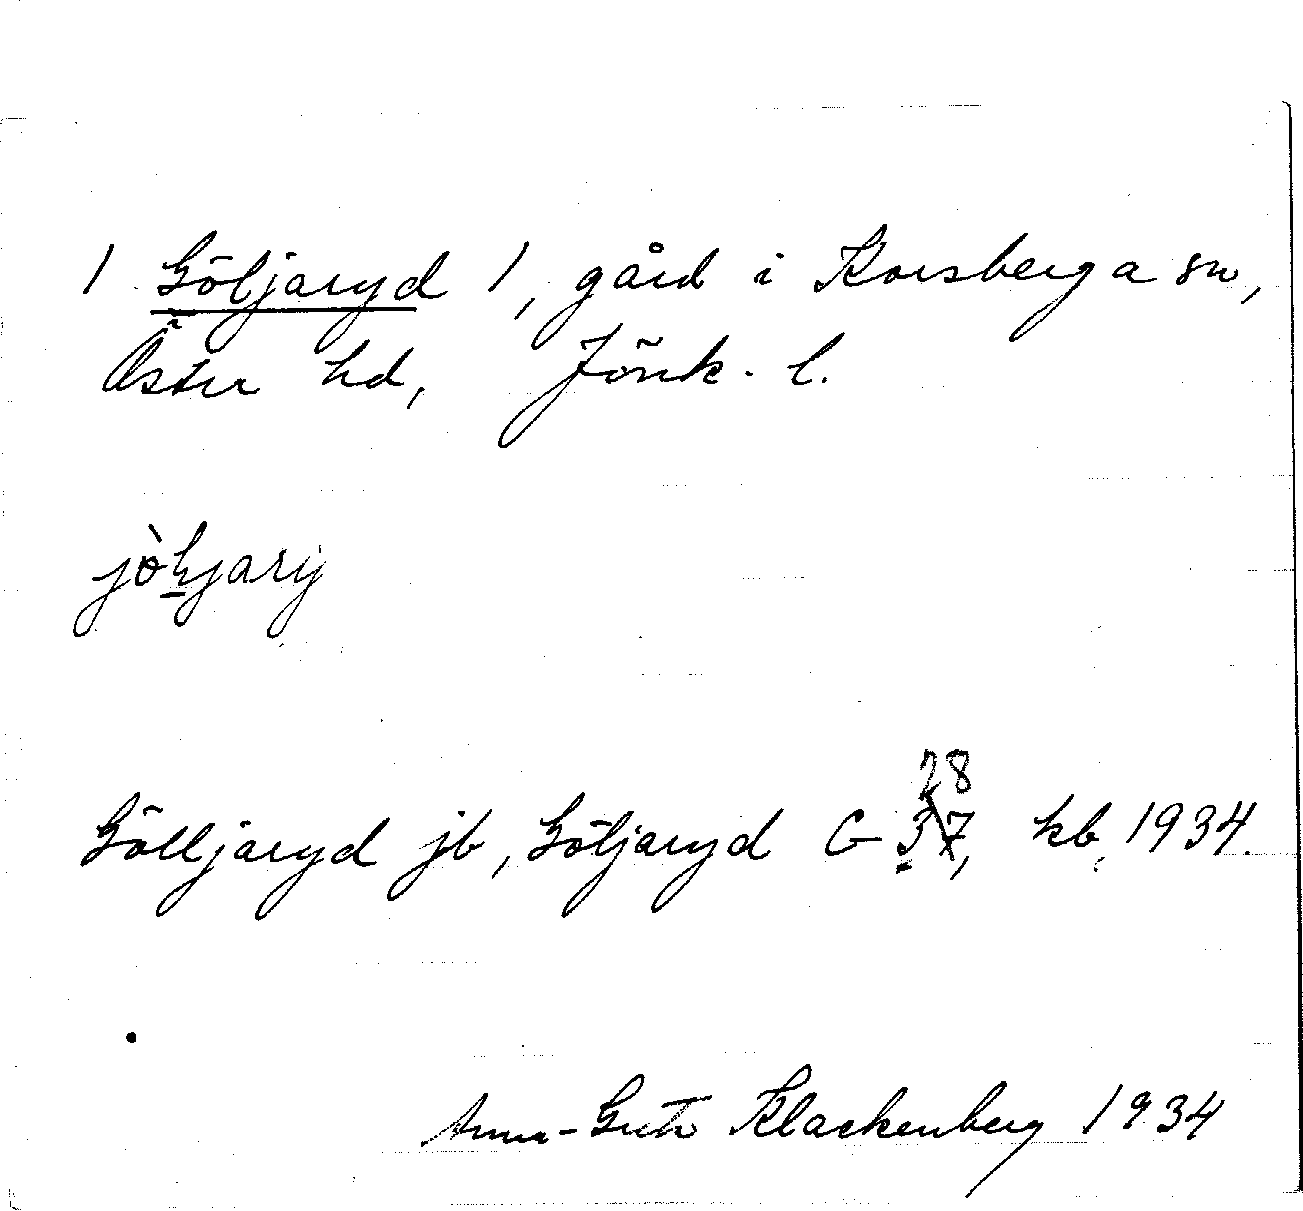 1 Göljaryd 1, gård i Korsberga sn,
Öster hd, Jönk. l.
28
Gölljaryd jb, Göljaryd G 37, kb 1934.
Anna-Greta Klackenberg 1934